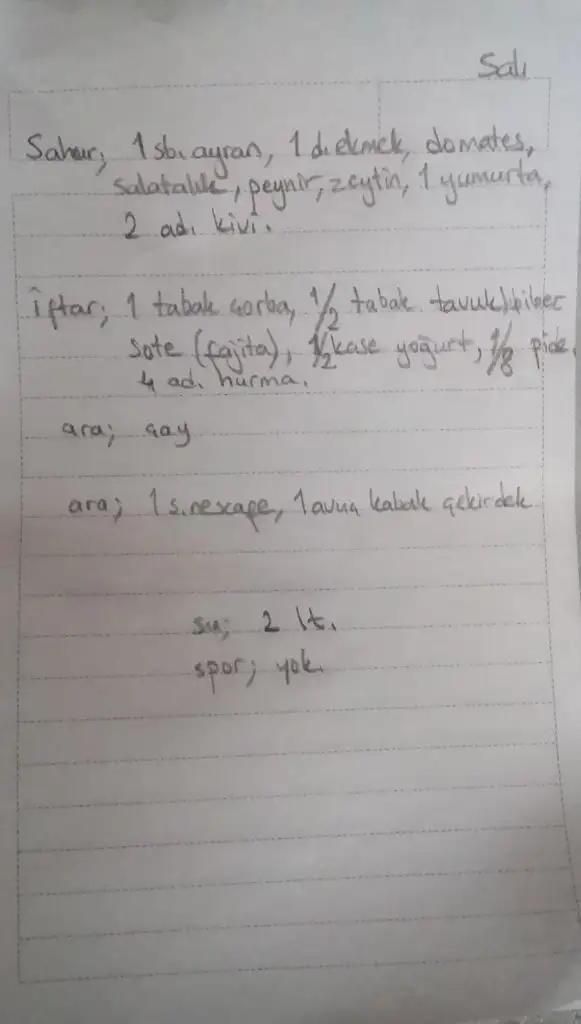 Salı
Sahur; 1 sb. ayran, 1 d. ekmek, domates,
salatalık, peynir, zeytin, 1 yumurta,
2 ad. kivi.
İftar; 1 tabak çorba, 1/2 tabak tavuk, biber
sote (fajita), 1/2 kase yoğurt, 1/8 pide,
4 ad. hurma.
ara; çay
ara; 1 s. nescape, 1 avuç kabak çekirdek
su; 2 lt.
spor; yok.